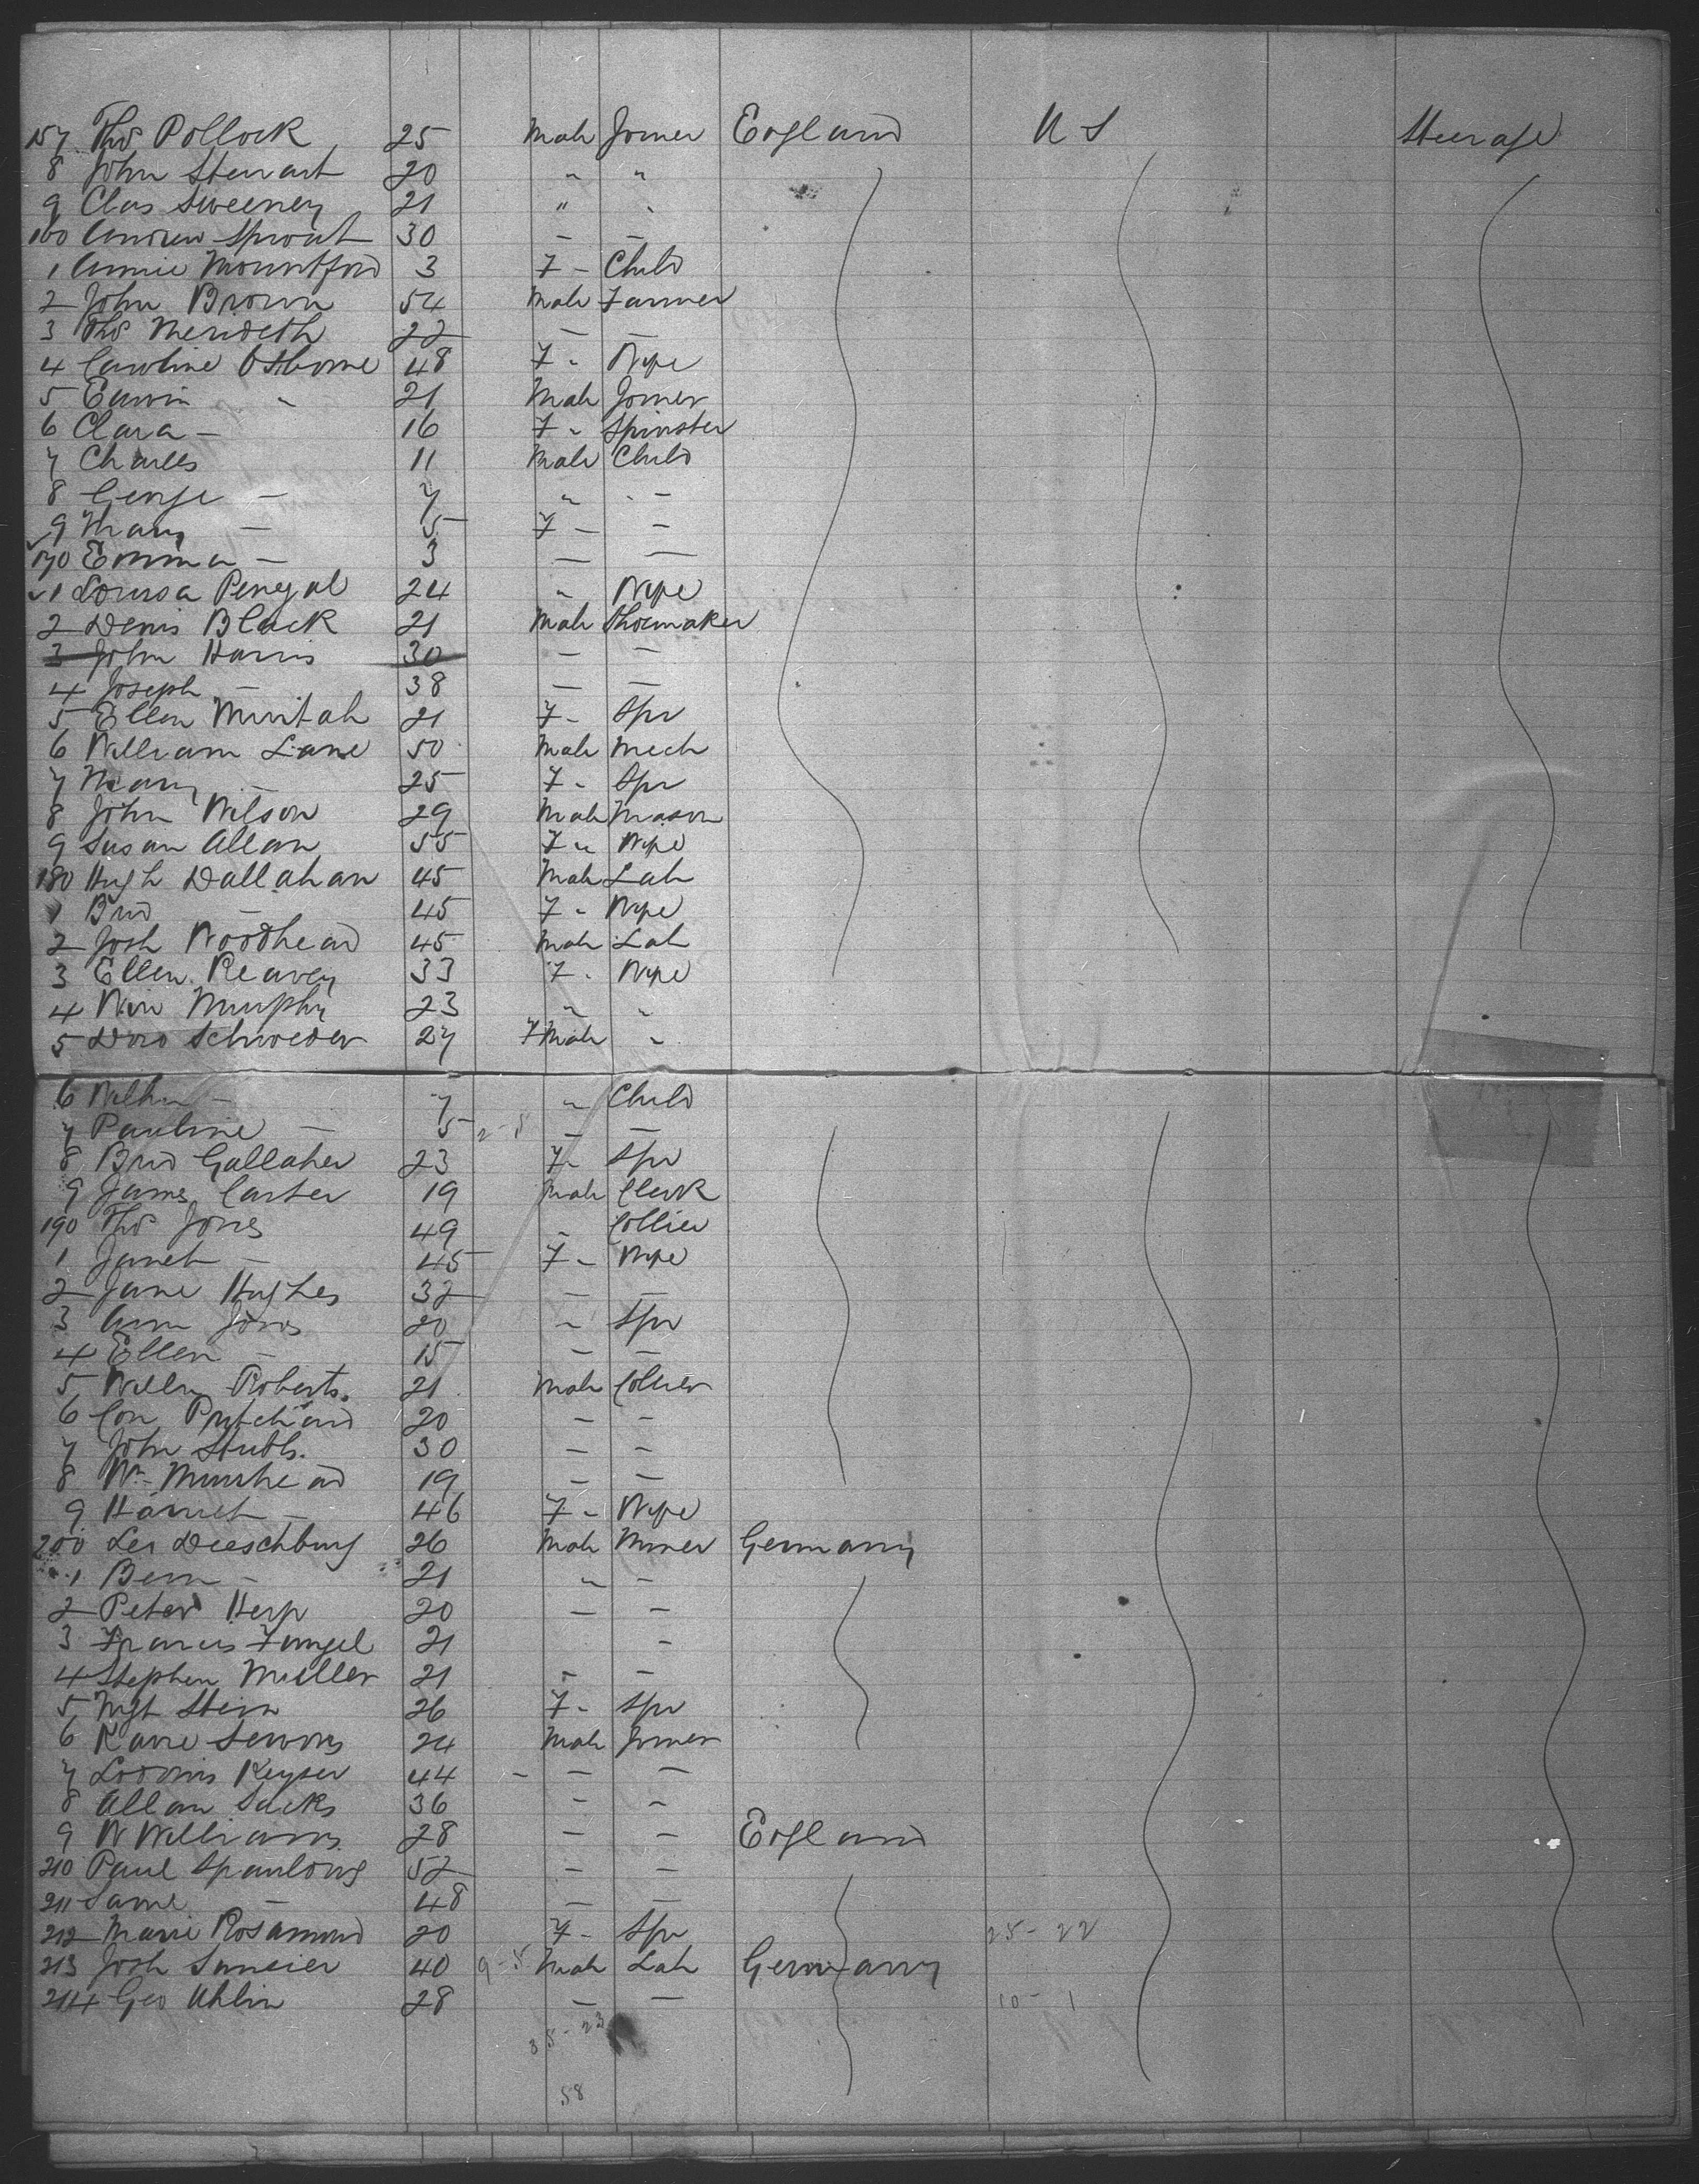 157 Thos Pollock 25 Male Joiner England U S Steerage
8 John Stewart 20 " "
9 Chas Sweeney 21 " "
160 Andrew Sproat 30 – –
1 Annie Mountford 3 F – Child
2 John Brown 54 Male Farmer
3 Thos Merideth 22 – –
4 Caroline Osborne 48 F " Wife
5 Edwin " 21 Male Joiner
6 Clara – 16 F " Spinster
7 Charles 11 Male Child
8 George – 7 " –
9 Mary – 5 F – –
170 Emma – 3 – –
1 Louisa 24 " Wife
2 Denis Black 21 Male Shoemaker
3 John Harris 30 – –
4 Joseph – 38 – –
5 Ellen 21 F – Spr
6 William Lane 50 Male Mech
7 Mary – 25 F – Spr
8 John Wilson 29 Male Mason
9 Susan Allan 55 F " Wife
180 Hugh Dallahan 45 Male Lab
1 Brid – 45 F " Wife
2 Josh Woodhead 45 Male Lab
3 Ellen Reavey 33 F " Wife
4 Murphy 23 " "
5 Schroeder 27 F Male "
6 – 7 " Child
7 Pauline – 5 – –
8 Brid Gallaher 23 F – Spr
9 James Carter 19 Male Clerk
190 Thos Jones 49 " Collier
1 Janet – 45 F " Wife
2 Jane Hughes 32 – –
3 Ann Jones 20 " Spr
4 Ellen – 15 – –
5 Willm Roberts. 21 Male Collier
6 Con Pritchard 20 – –
7 John Stubbs. 30 – –
8 Wm Muirhead 19 – –
9 Harriet – 46 F " Wife
200 Dieschburg 26 Male Miner Germany
1 Bern – 21 " –
2 Peter Herp 20 – –
3 Francis 21 –
4 Stephen Muller 21 – –
5 Mgt Stein 26 F " Spr
6 24 Male Joiner
7 Keyser 44 – – –
8 Allan Sacks 36 – –
9 W Williams 28 – – England
210 Paul Spaulding 52 – –
211 – 48 – –
212 Marie Rosamond 20 F – Spr 25 - 22
213 Josh 40 Male Lab Germany
214 Geo Uhlin 28 – – 10 - 1
58